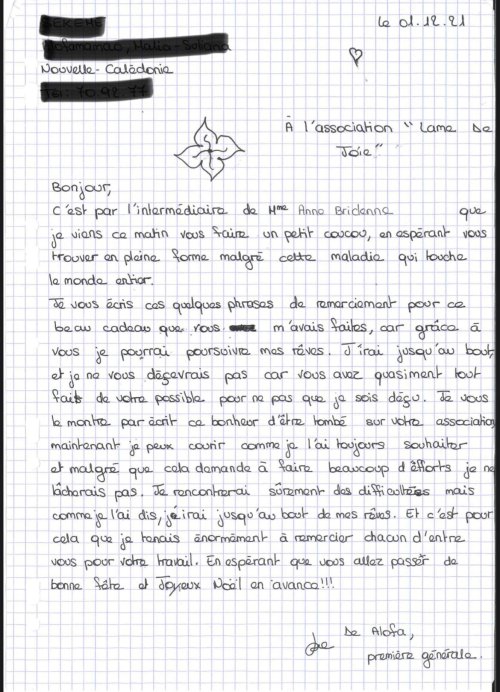 le 01.12.21
Nouvelle-Calédonie
À l'association "Lame De
Joie"
Bonjour,
C'est par l'intermédiaire de Mme Anne Bridenne que
je viens ce matin vous faire un petit coucou, en espérant vous
trouver en pleine forme malgré cette maladie qui touche
le monde entier.
Je vous écris ces quelques phrases de remerciement pour ce
beau cadeau que vous m'avais faites, car grâce à
vous je pourrai poursuivre mes rêves. J'irai jusqu'au bout,
et je ne vous décevrais pas car vous avez quasiment tout
fait de votre possible pour ne pas que je sois déçu. Je vous
le montre par écrit ce bonheur d'être tombé sur votre association,
maintenant je peux courir comme je l'ai toujours souhaiter
et malgré que cela demande à faire beaucoup d'éfforts je ne
lâcherais pas. Je rencontrerai sûrement des difficultées mais
comme je l'ai dis, j'irai jusqu'au bout de mes rêves. Et c'est pour
cela que je tenais énormément à remercier chacun d'entre
vous pour votre travail. En espérant que vous allez passer de
bonne fête et Joyeux Noël en avance!!!
De Alofa,
première générale.